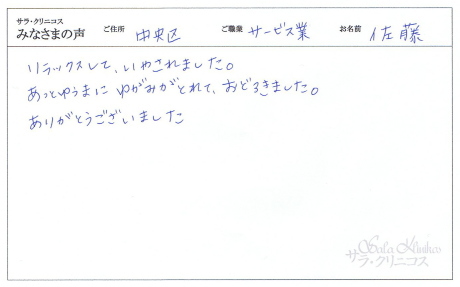 サラ・クリニコス
みなさまの声 ご住所 中央区 ご職業 サービス業 お名前 佐藤
リラックスして、いやされました。
あっとゆうまに ゆがみがとれて、おどろきました。
ありがとうございました
Sala Klinikos
サラ・クリニコス